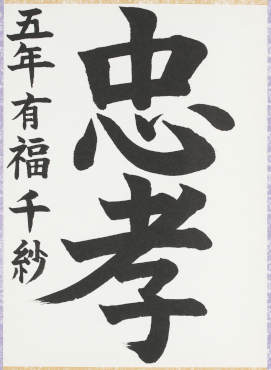 忠孝
五年有福千紗